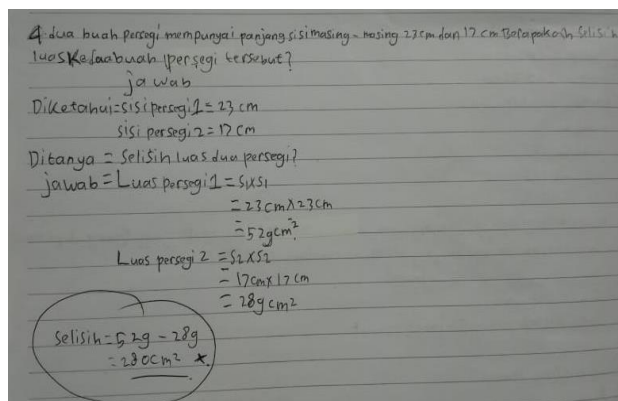 4. dua buah persegi mempunyai panjang sisi masing-masing 23 cm dan 17 cm Berapakah Selisih
luas Kedua buah persegi tersebut?
jawab
Diketahui = sisi persegi 1 = 23 cm
sisi persegi 2 = 17 cm
Ditanya = Selisih luas dua persegi?
jawab = Luas persegi 1 = S1 x S1
= 23 cm x 23 cm
= 529 cm²
Luas persegi 2 = S2 x S2
= 17 cm x 17 cm
= 289 cm2
Selisih = 529 - 289
= 240 cm²